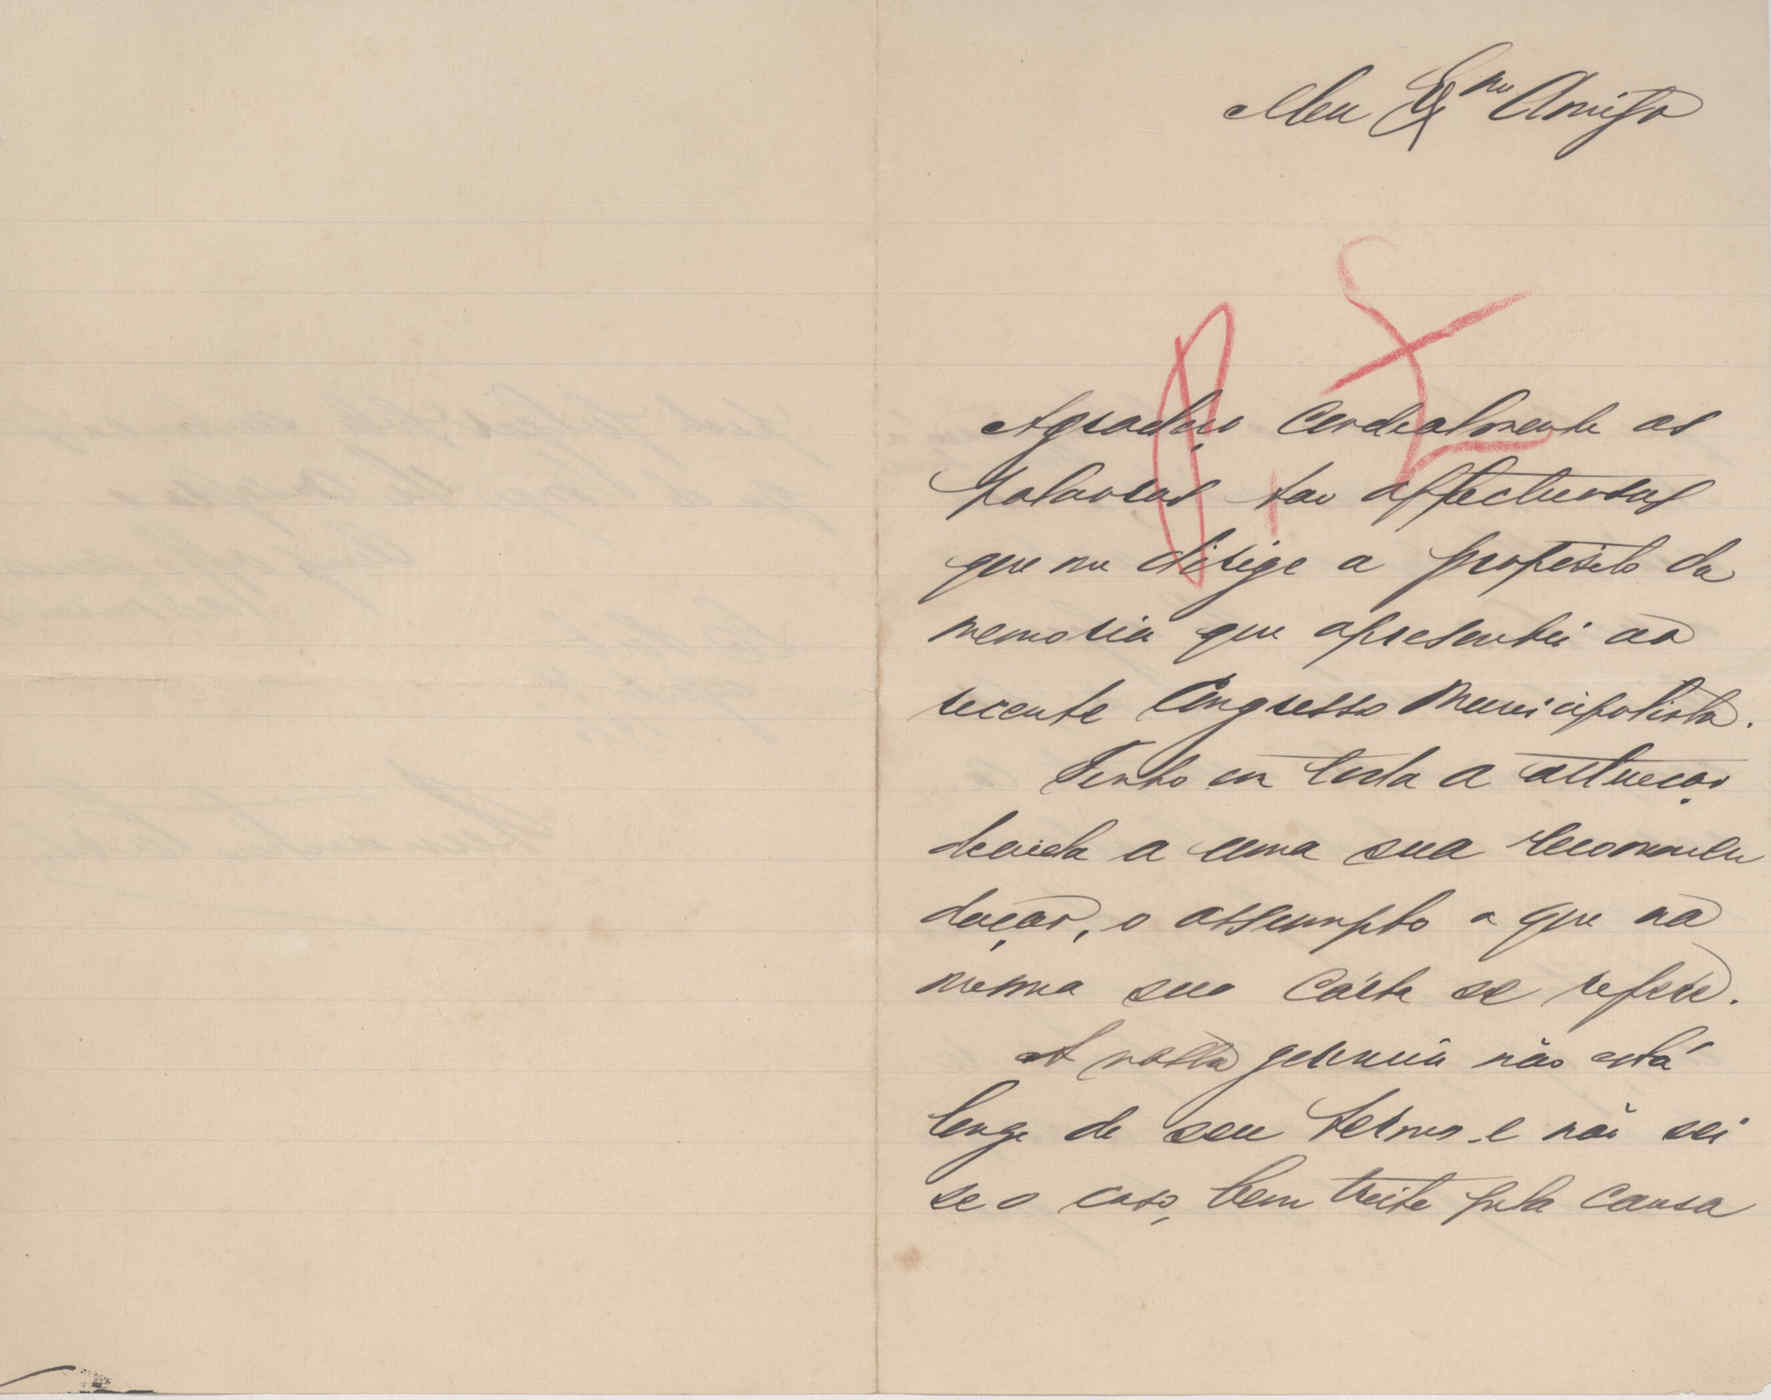 Meu Exmo Amigo
Agradeço cordealmente as
palavras tao affectuosas
que me dirige a proposito da
memoria que apresentei ao
recente Congresso Municipalista.
Tenho em toda a attenção
devida a uma sua recommen
dação, o assumpto a que na
mesma sua cárta se refere.
A nossa gerencia não está
longe de seu termo e não sei
se o caso, bem triste pela causa